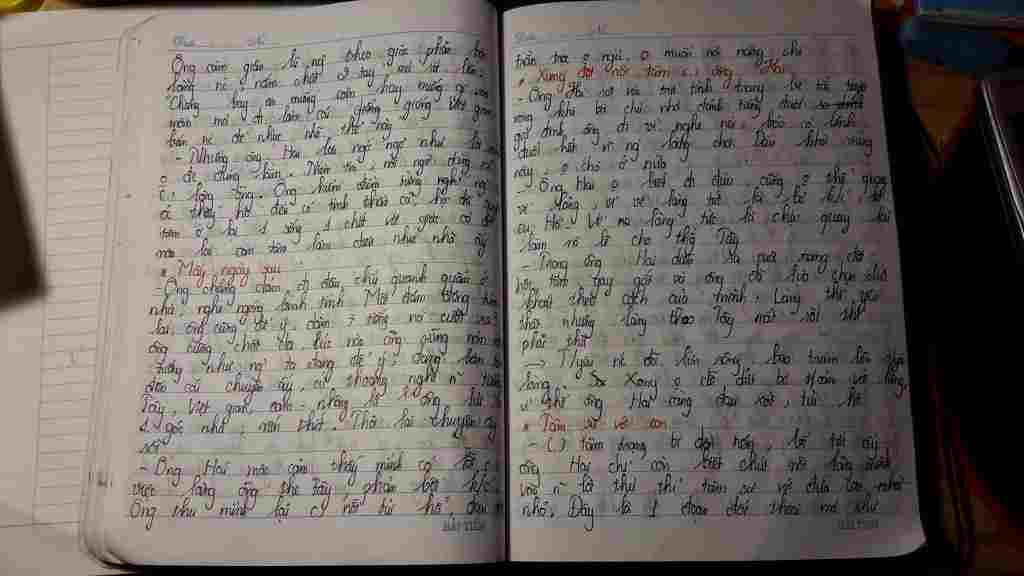 Ông căm giận lũ ng' theo giặc phản bội
làng nc', nắm chặt 2 tay mà rít lên:
Chúng bay ăn miếng cơm hay miếng gì vào
mồm mà đi làm cái giống Việt gian
bán nc' để nhục nhã thế này
- Nhưng ông Hai lại ngờ ngợ như lời mình
o đc đúng lắm. Niềm tin, nỗi ngờ
Ông kiểm điểm từng ng'
thấy họ đều có tinh thần cả họ đã
tâm o lại 1 sống 1 chết với giặc có đời
nào lại cam tâm làm điều nhục nhã ấy
* Mấy ngày sau
- Ông chẳng dám đi đâu, chỉ quanh quẩn ở
nhà, nghe ngóng binh tình. Một đám đông túm
lại, ông cũng để ý, dăm 3 tiếng nói cười xa
ông cũng chột dạ. Lúc nào ông cũng nơm nớp
tưởng như ng' ta đang để ý, đang bàn tán
đến cái chuyện ấy, cứ thoáng nghe n~ tiếng
Tây, Việt gian, cam-nhông là ông lủi ra
1 góc nhà, nín thít. Thôi lại chuyện ấy
rồi
- Ông Hai nào cảm thấy mình có lỗi,
việc làng ông theo Tây phản bội k/c
Ông thu mình lại nỗi tủi hổ, đau
trằn trọc o ngủ, o muốn nói năng chi
* Xung đột nội tâm ông Hai
- Ông Hai rơi vào tình trạng bế tắc tuyệt
vọng khi bà chủ nhà đánh tiếng đuổi
gia đình ông đi vì nghe nói trên có lệnh
đuổi hết n~ ng' làng chợ Dầu khỏi vùng
này, o cho ở nữa
- Ông Hai o biết đi đâu, cũng o thể quay
về làng, vì về làng tức là bỏ k/c, bỏ
cụ Hồ. Về làng tức là chịu quay lại
làm nô lệ cho thằng Tây
- Trong ông Hai diễn ra cuộc xung đột
nội tâm gay gắt và ông đã lựa chọn dứt
khoát theo cách của mình. Làng thì yêu
thật nhưng làng theo Tây mất rồi thì
phải thù
→ T/yêu nc' đã lớn rộng bao trùm lên t/yêu
làng. Song o dễ dứt bỏ đc với làng
vì thế ông Hai càng đau xót, tủi hổ
* Tâm sự với con
- tâm trạng bị dồn nén, bế tắc ấy,
ông Hai chỉ còn biết chút nỗi lòng mình
vào n~ lời thủ thỉ tâm sự với đứa con nhỏ
nhỏ. Đây là 1 đoạn đối thoại mà như
HẢI TIẾN
HẢI TIẾN